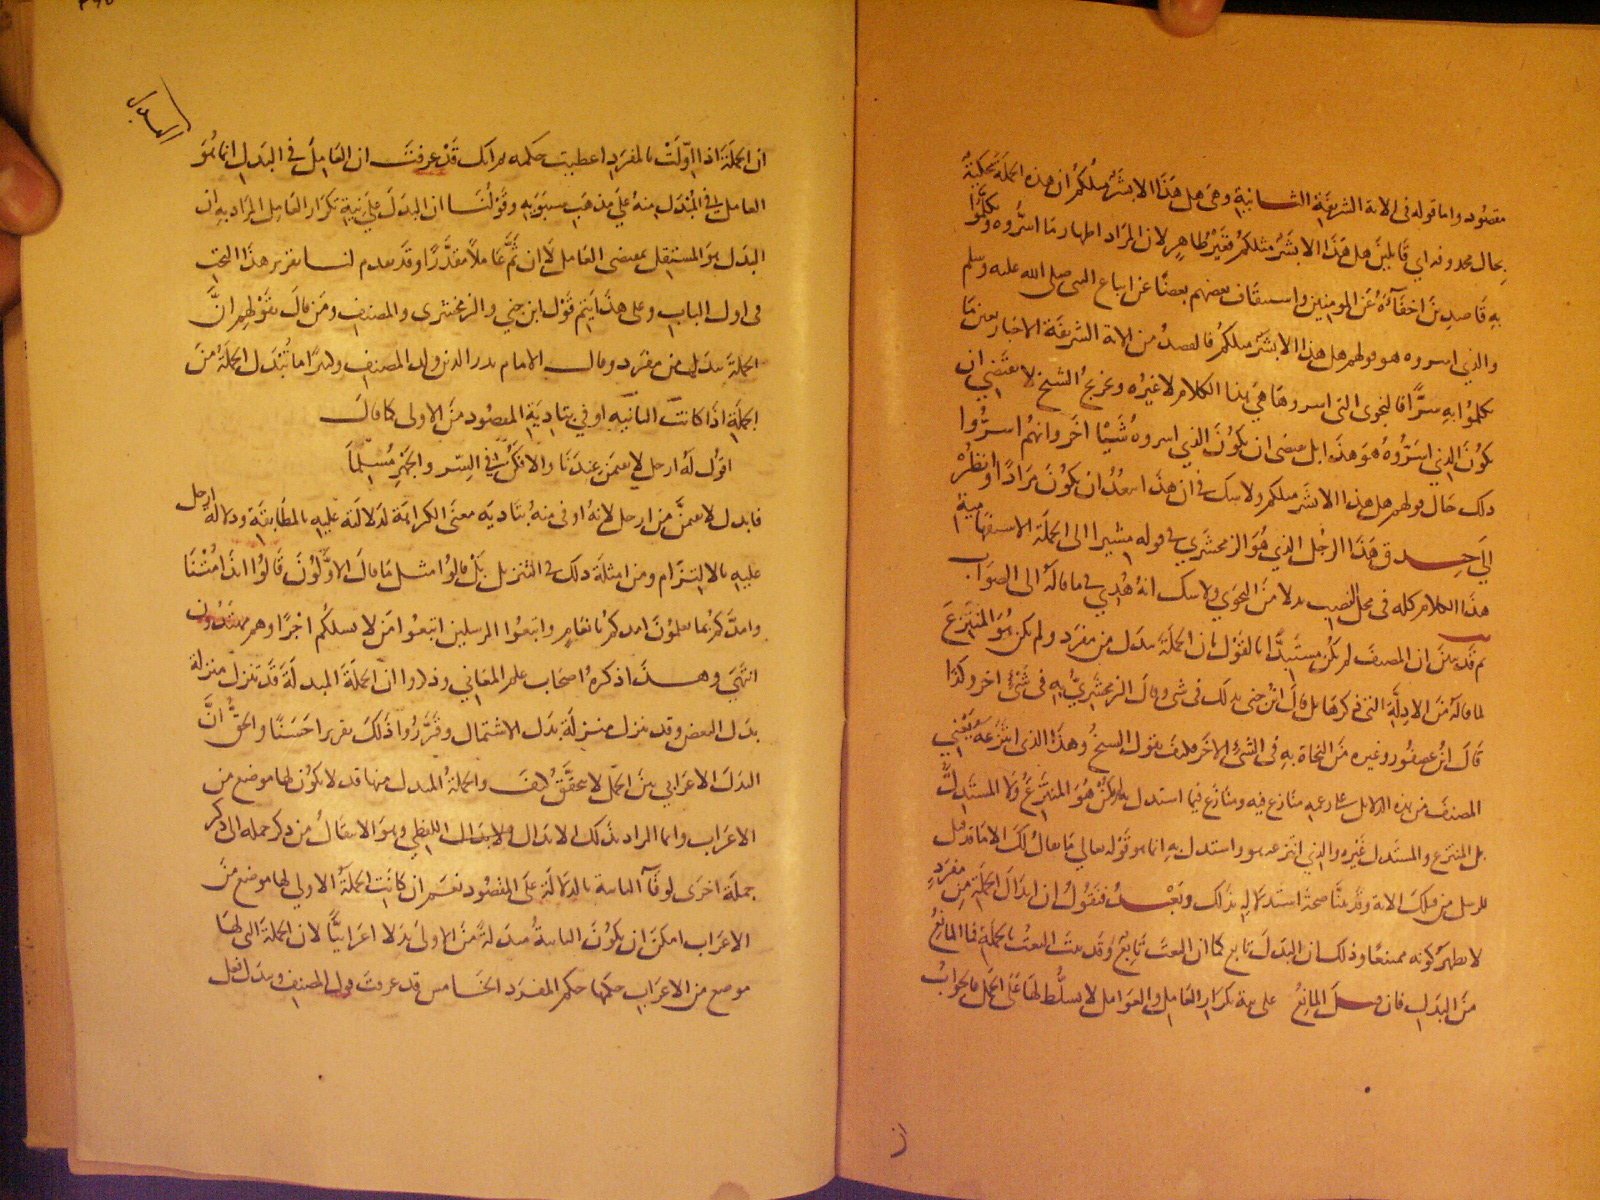 مقصود واما قوله في الاية الشريفة الثانية وهي هل هذا الا بشر مثلكم ان هذه الجملة محكية
بحال محذوفه اي قايلين هل هذا الا بشر مثلكم فغير ظاهر لان المراد اظهار ما اسروه وتكلموا
به قاصدين اخفآه عن المومنين واستيقاف بعضهم بعضا عن اتباع النبي صلى الله عليه وسلم
والذي اسروه هو قولهم هل هذا الا بشر مثلكم فالقصد من الاية الشريفة الاخبار بعين ما
تكلموا به سرا فالنجوى التي اسروها هي هذا الكلام لا غيره وتخريج الشيخ لا يقتضي ان
يكون الذي اسروه هو هذا بل يقتضي ان يكون الذي اسروه شيئا اخر وانهم اسروا
ذلك حال قولهم هل هذا الا بشر مثلكم ولا شك في ان هذا يبعد ان يكون مرادا وانظره
الى حذق هذا الرجل الذي هو الزمخشري في قوله مشيرا الى الجملة الاستفهامية
هذا الكلام كله في محل النصب بدلا من النجوى ولا شك انه هُدي في ما قاله الى الصواب
ثم قد تبين ان المصنف لم يكن مستبدا بالقول بان الجملة تبدل من مفرد ولم يكن هو المنتزع
لما قاله من الادلة التي ذكرها بل قال ابن جني بذلك في شي وقال الزمخشري به في شئ اخر وكذا
قال ابن عصفور وغيره من النحاة به في الشئ الاخر فكيف يقول الشيخ وهذا الذي انتزعه يعني
المصنف من هذه الدلايل على زعمه منازع فيه ومنازع فيما استدل به ولم يكن هو المنتزع ولا المستدل
بل المنتزع والمستدل غيره والذي انتزعه هو واستدل به انما هو قوله تعالي ما يقال لك الا ما قد قيل
للرسل من قبلك الاية وقد بينا صحة استدلاله بذلك وبعد فنقول ان ابدال الجملة من مفرد
لا يظهر كونه ممتنعا وذلك ان البدل تابع كما ان النعت تابع وقد يقع النعت بالجملة فما المانع
من البدل فان قيل المانع على نية تكرار العامل والعوامل لا تسلط لها على الجمل فالجواب
ان الجملة اذا اولت بالمفرد اعطيت حكمه مع انك قد عرفت ان العامل في البدل انما هو
العامل في المبدل منه على مذهب سيبويه وقولنا ان البدل على نية تكرار العامل المراد به ان
البدل هو المستقل بمقتضى العامل لا ان ثم عاملا مقدرا وقد تقدم لنا تقرير هذا البحث
في اول الباب وعلى هذا يتم قول ابن جني والزمخشري والمصنف ومن قال بقولهم ان
الجملة تبدل من مفرد وقال الامام بدر الدين ولد المصنف وكثيرا ما تبدل الجملة من
الجملة اذا كانت الثانيه اوفى بتادية المقصود من الاولى كما قال
اقول له ارحل لا تقيمن عندنا والا فكن في السر والجهر مسلما
فابدل لا تقيمن من ارحل لانه اوفى منه بتاديه معنى الكراهة لدلالته عليه بالمطابقة ودلالة ارحل
عليه بالالتزام ومن امثلة ذلك في التنزيل بل قالوا مثل ما قال الاولون قالوا ائذا متنا
وامدكم بما تعلمون امدكم بانعام واتبعوا المرسلين اتبعوا من لا يسلكم اجرا وهم مهتدون
انتهى وهذا ذكره اصحاب علم المعاني وزادوا ان الجملة المبدلة قد تنزل منزلة
بدل البعض وقد تنزل منزلة بدل الاشتمال وقرروا ذلك تقريرا حسنا والحق ان
البدل الاعرابي بين الجمل لا يتحقق كيف والجملة المبدل منها قد لا يكون لها موضع من
الاعراب وانما المراد بذلك الابدال الابدال اللفظي وهو الانتقال من ذكر جملة الى ذكر
جملة اخرى لوفآ الثانية بالدلالة على المقصود نعم ان كانت الجملة الاولي لها موضع من
الاعراب امكن ان يكون الثانية مبدلة من الاولى بدلا اعرابيا لان الجملة التي لها
موضع من الاعراب حكمها حكم المفرد الخامس قد عرفت قول المصنف ويبدل فعل